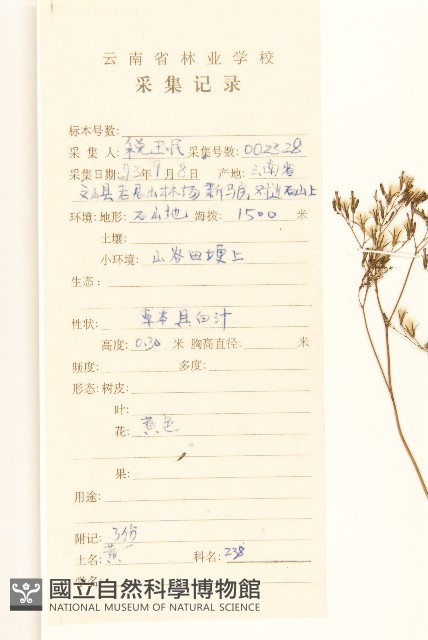 云南省林业学校
采集记录
标本号数:
采集人: 税玉民 采集号数: 002328
采集日期: 93年9月8日 产地: 云南省
文山县老君山林场新马房对边石山上
环境: 地形: 石山地 海拨: 1500 米
土壤:
小环境: 山谷田埂上
生态:
性状: 草本具白汁
高度: 0.30 米 胸高直径: 米
频度: 多度:
形态: 树皮:
叶:
花: 黄色
果:
用途:
附记: 3份
土名: 黄 科名: 238
学名
國立自然科學博物館
NATIONAL MUSEUM OF NATURAL SCIENCE